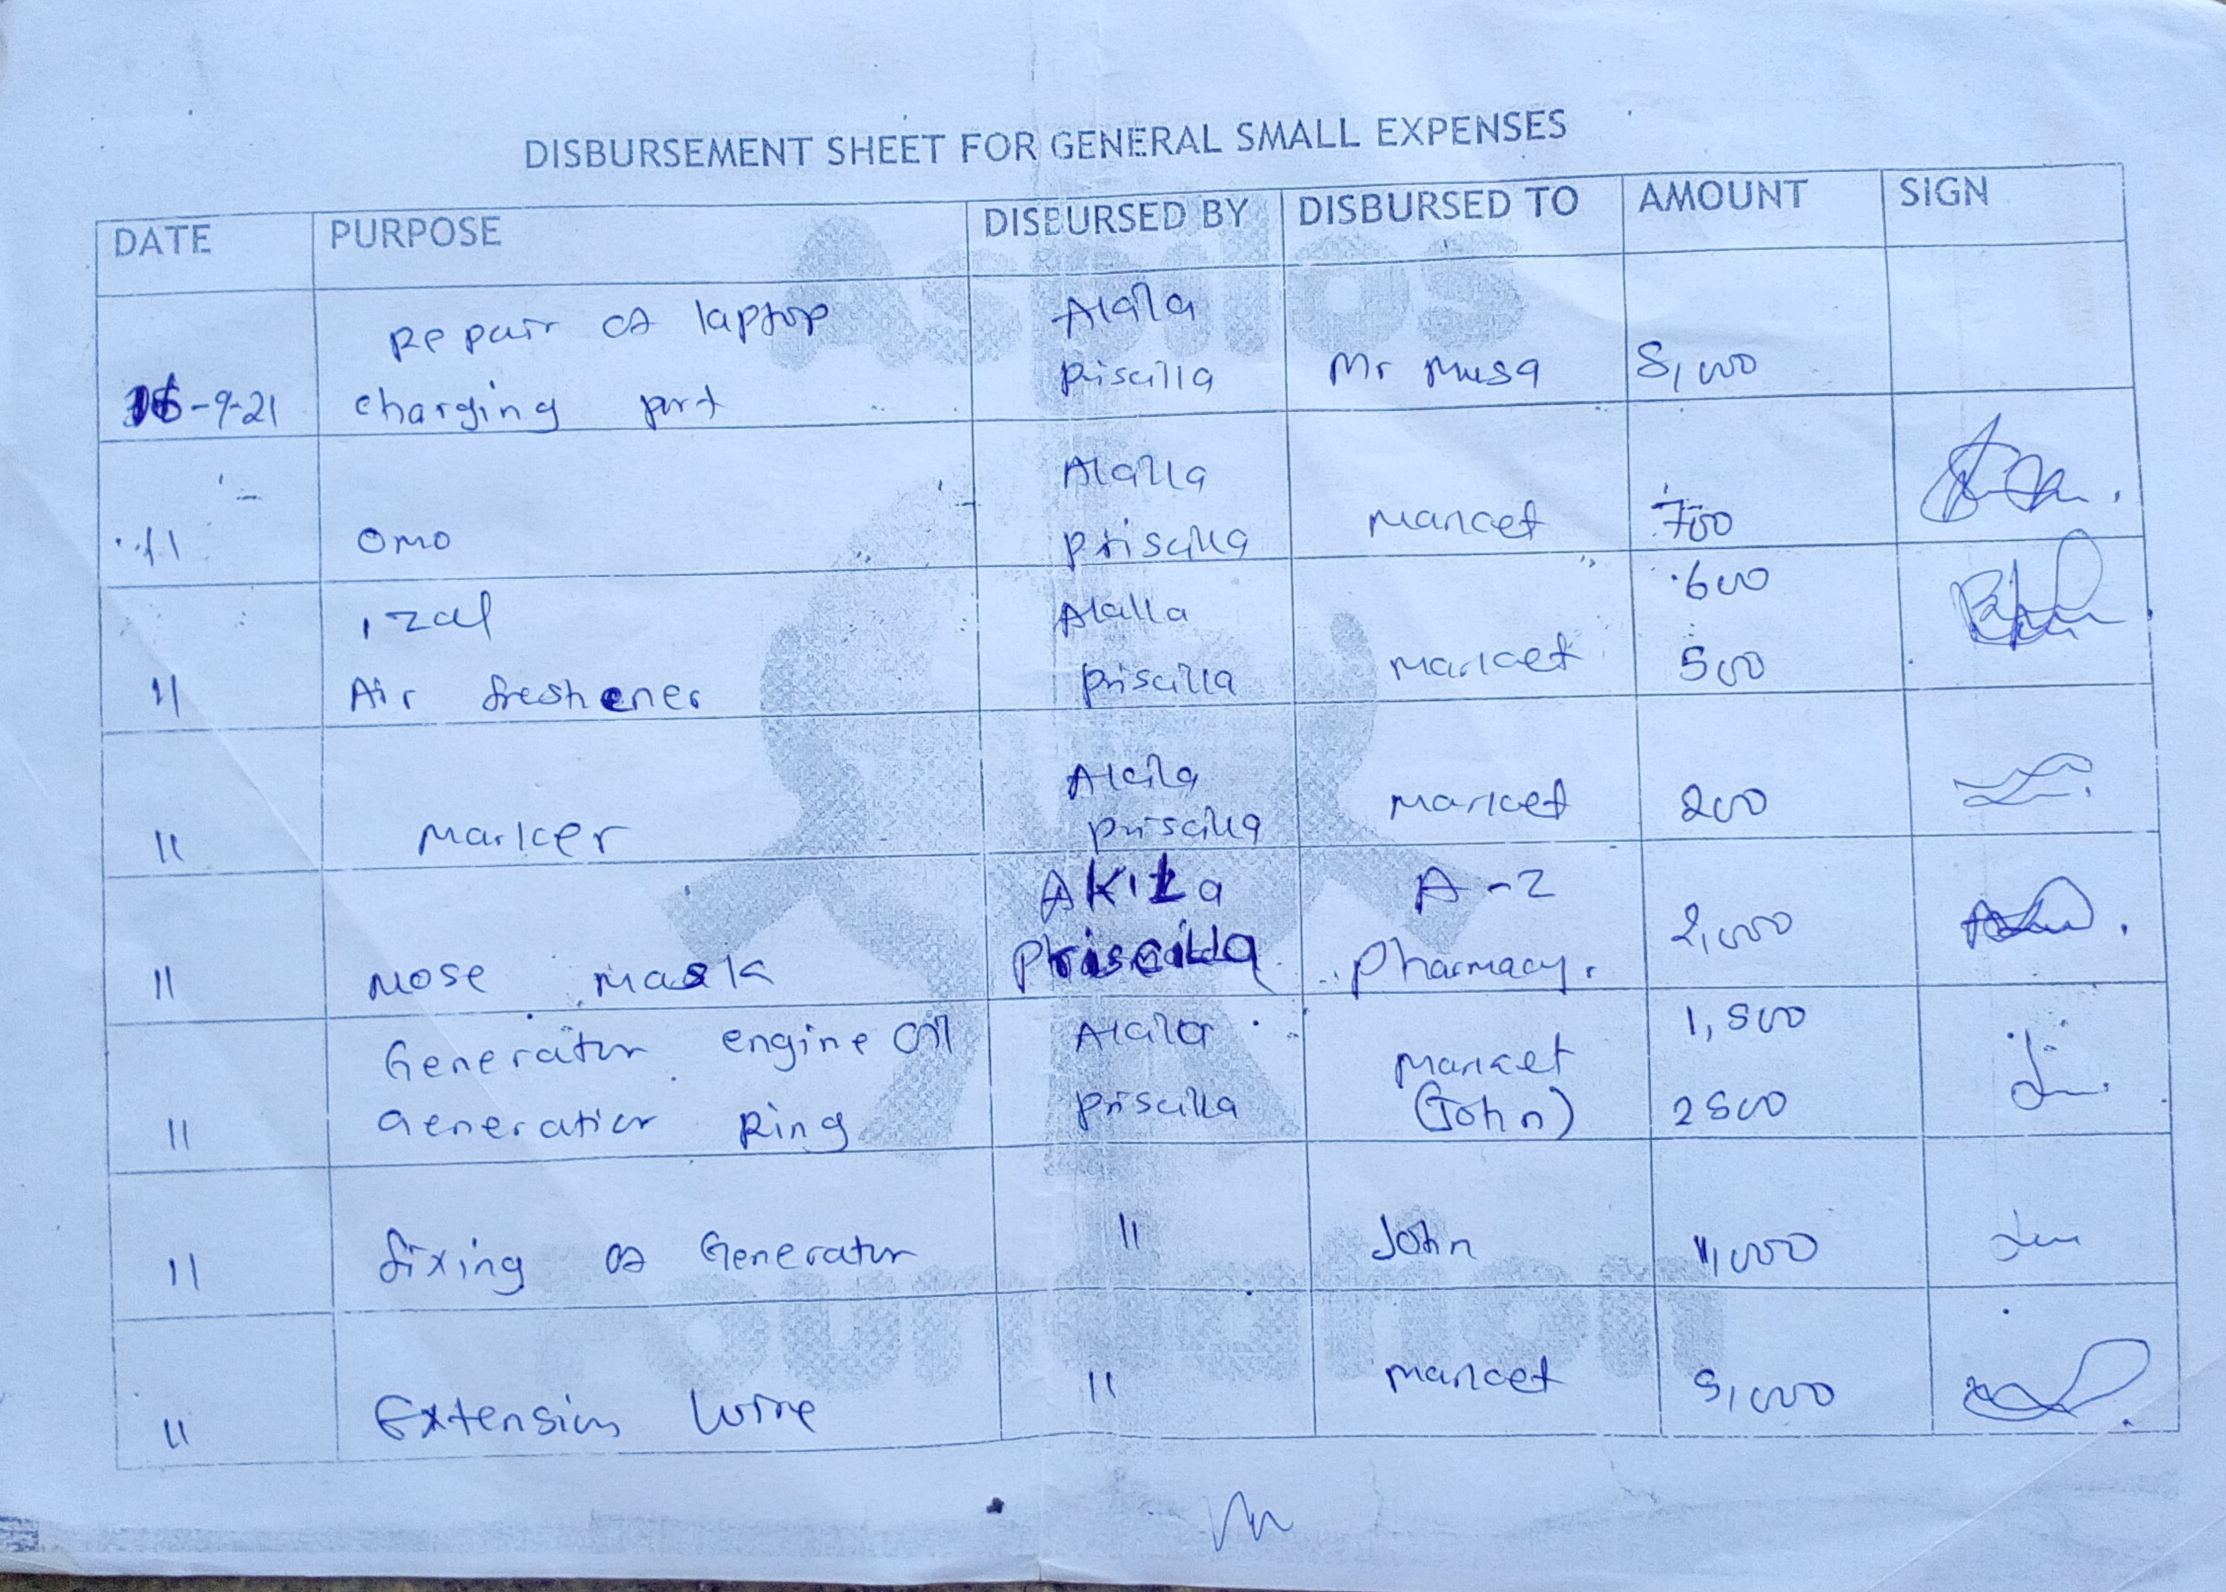 DISBURSEMENT SHEET FOR GENERAL SMALL EXPENSES
DATE PURPOSE DISBURSED BY DISBURSED TO AMOUNT SIGN
Repair of laptop Akila
16-9-21 charging port Priscilla Mr Musa 8,000
Akila
11 omo Priscilla Market 700
izal Akila 600
11 Air freshener Priscilla Market 500
Akila
11 Marker Priscilla Market 200
AKILa A-Z
11 Nose mask Priscilla Pharmacy. 2,000
Generator engine oil Akila Market 1,500
11 Generatior Ring Priscilla (John) 2500
11 fixing of Generator 11 John
11 Extension wire 11 Market
Aspilos
Foundation